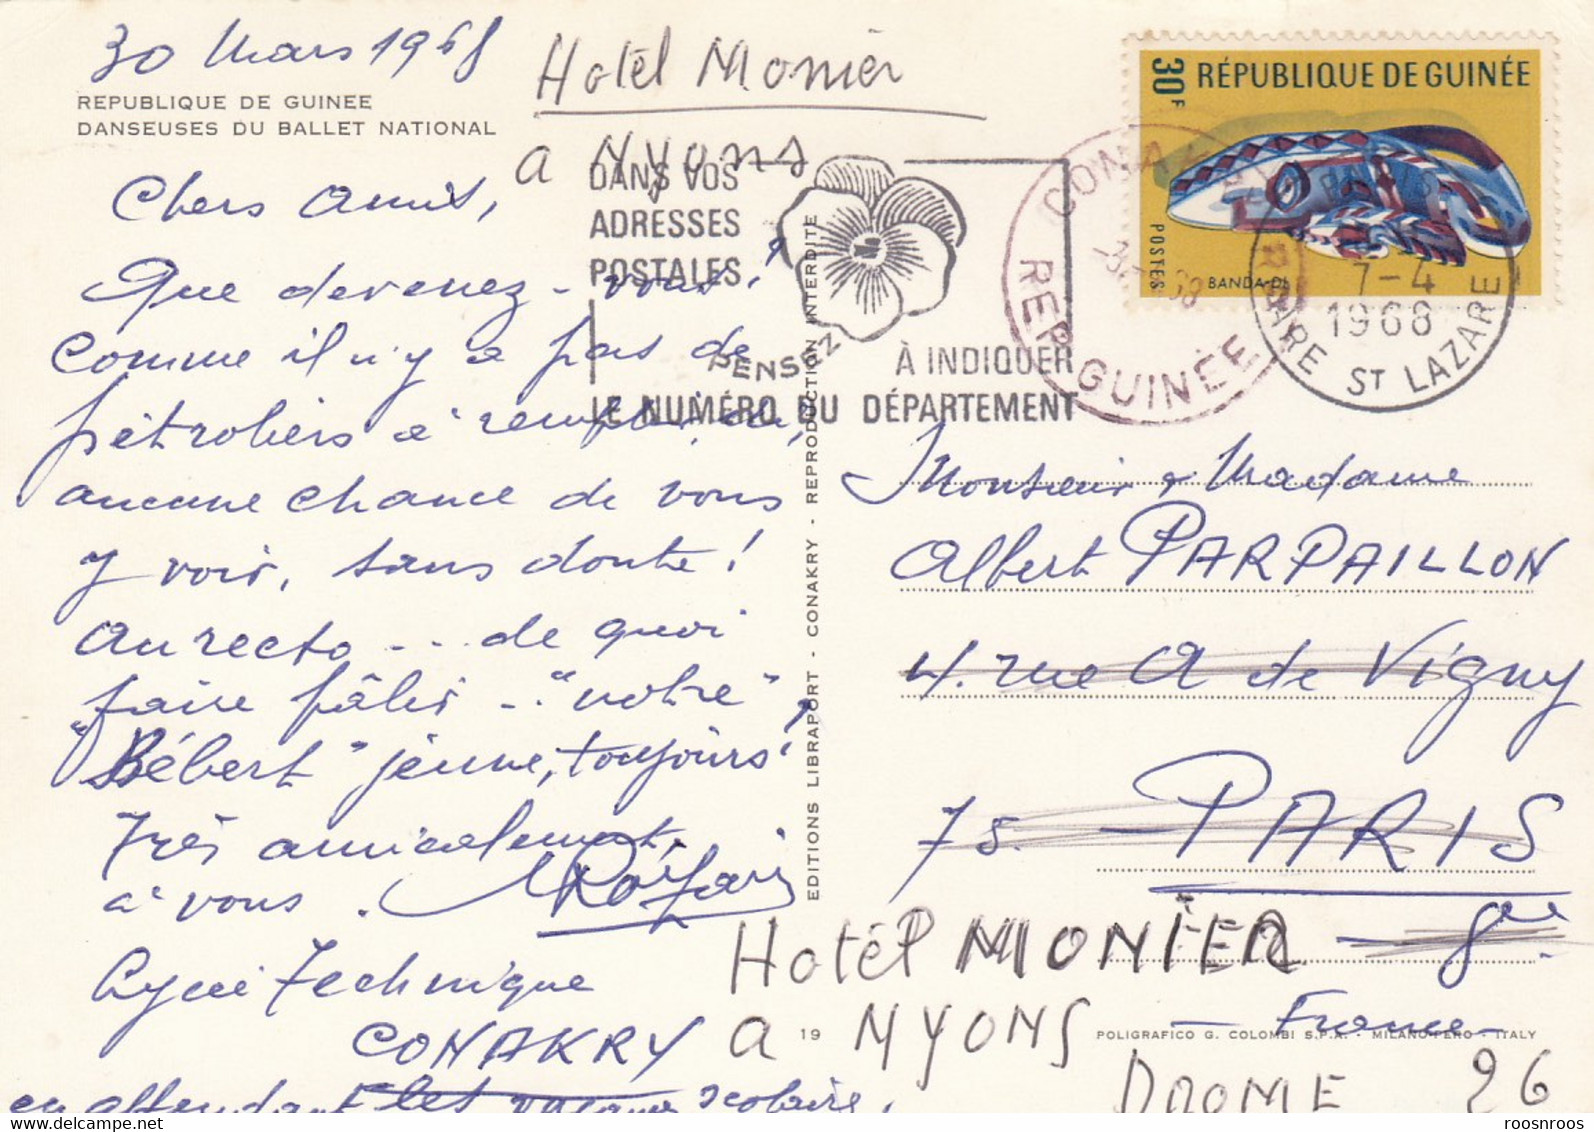 30 Mars 1968
REPUBLIQUE DE GUINEE
DANSEUSES DU BALLET NATIONAL
Hotél Moniér
a Nyons
Chers Amis,
Que devenez-vous?
Comme il n'y a pas de
pétroliers à
aucune chance de vous
y voir, sans doute!
Au recto... de quoi
faire pâlir... "notre"
"Bébert" jeune, toujours!
Très amicalement,
à vous.
Lycée Technique
CONAKRY
en attendant les vacances scolaires,
DANS VOS
ADRESSES
POSTALES
PENSEZ
À INDIQUER
LE NUMÉRO DU DÉPARTEMENT
EDITIONS LIBRAPORT - CONAKRY - REPRODUCTION INTERDITE
30F RÉPUBLIQUE DE GUINÉE
POSTES
BANDA-DI
CONAKRY
REP. GUINÉE
7-4
1968
GARE ST LAZARE
Monsieur & Madame
Albert PARPAILLON
4. rue A de Vigny
75. PARIS
8ème
- France -
Hotél MONIER
a NYONS
DROME 26
19
POLIGRAFICO G. COLOMBI S.P.A. - MILANO-PERO - ITALY
roosnroos